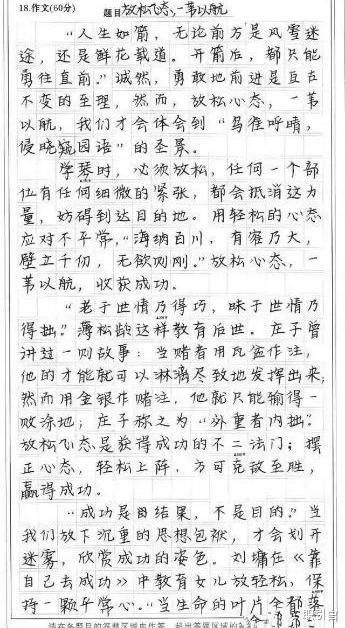 18.作文(60分)
题目 放松心态,一苇以航
“人生如箭,无论前方是风雪迷
途,还是鲜花载道。开箭后,都只能
勇往直前。”诚然,勇敢地前进是亘古
不变的至理,然而,放松心态,一苇
以航,我们才会体会到“鸟雀呼晴,
侵晓窥园语”的圣景。
学琴时,必须放松,任何一个部
位有任何细微的紧张,都会抵消这力
量,妨碍到达目的地。用轻松的心态
应对不平常,“海纳百川,有容乃大,
壁立千仞,无欲则刚。”放松心态,一
苇以航,收获成功。
“老于世情乃得巧,昧于世情乃
得拙。”蒲松龄这样教育后世。庄子曾
讲过一则故事:当赌者用瓦盆作注,
他的才能就可以淋漓尽致地发挥出来,
然而用金银作赌注,他就只能输得一
败涂地;庄子称之为“外重者内拙”。
放松心态是获得成功的不二法门;摆
正心态,轻松上阵,方可克敌至胜,
赢得成功。
“成功是结果,不是目的。”当
我们放下沉重的思想包袱,才会划开
迷雾,欣赏成功的姿色。刘墉在《靠
自己去成功》中教育女儿放轻松,保
持一颗平常心。“当生命的叶片全部落